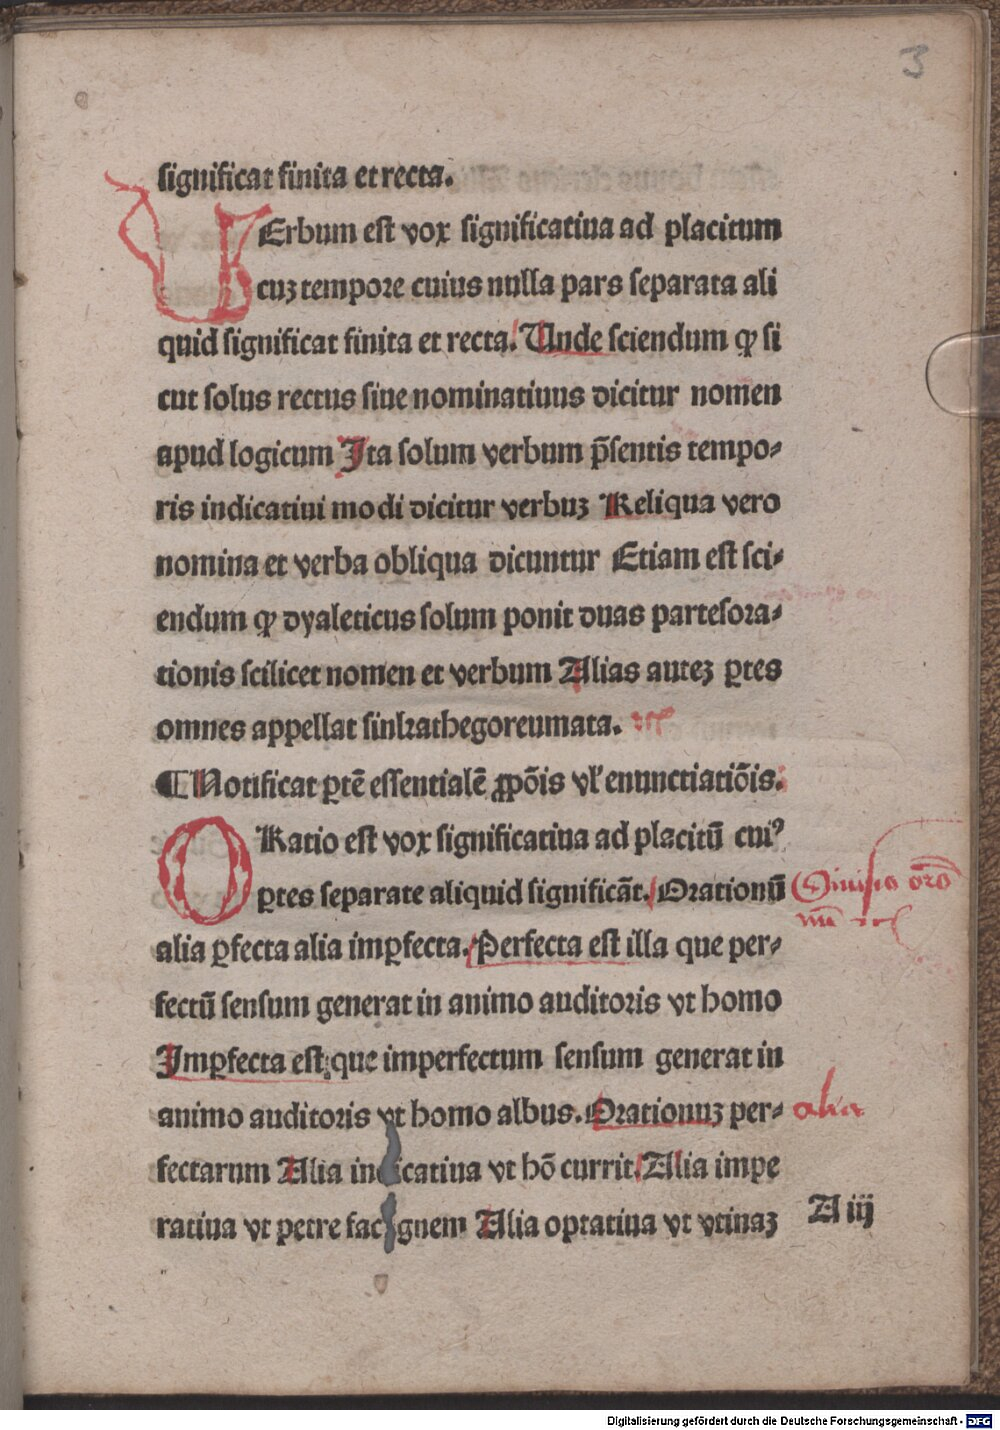 3
significat finita et recta.
VErbum est vox significatiua ad placitum
cuȝ tempore cuius nulla pars separata ali
quid significat finita et recta. Unde sciendum ꝙ si
cut solus rectus siue nominatiuus dicitur nomen
apud logicum Ita solum verbum p̄sentis tempo⸗
ris indicatiui modi dicitur verbuȝ Reliqua vero
nomina et verba obliqua dicuntur Etiam est sci⸗
endum ꝙ dyaleticus solum ponit duas partesora⸗
tionis scilicet nomen et verbum Alias auteȝ ꝑtes
omnes appellat sinkathegoreumata.
¶ Notificat ꝑtē essentialē ꝓpōis vl' enunctiatiōis.
ORatio est vox significatiua ad placitū cuiꝰ
ꝑtes separate aliquid significāt. Orationū
alia ꝑfecta alia imꝑfecta. Perfecta est illa que per⸗
fectū sensum generat in animo auditoris vt homo
Imꝑfecta est que imperfectum sensum generat in
animo auditoris vt homo albus. Orationuȝ per⸗
fectarum Alia indicatiua vt hō currit. Alia impe
ratiua vt petre fac ignem Alia optatiua vt vtinaȝ
Diuisio
alia
A iij
Digitalisierung gefördert durch die Deutsche Forschungsgemeinschaft - DFG